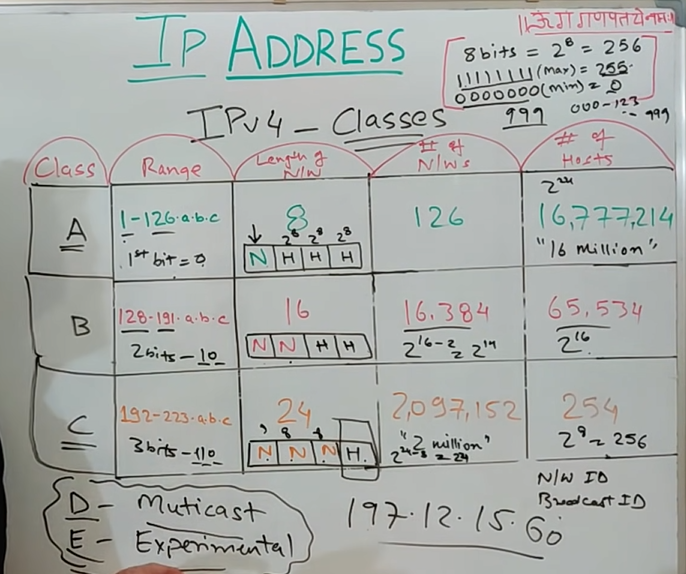 ॥ॐ गं गणपतये नमः॥
IP ADDRESS
8bits = 2⁸ = 256
11111111 (max) = 255.
00000000 (min) = 0
999 000-123
:- 999
IPv4 - Classes
Class Range Length of N/W # of N/W's # of Hosts
A
1-126.a.b.c
1st bit = 0
8
2⁸ 2⁸ 2⁸
N H H H
126
2²⁴
16,777,214
"16 Million"
B
128-191.a.b.c
2bits - 10
16
N N H H
16,384
2¹⁶⁻² = 2¹⁴
65,534
2¹⁶
C
192-223.a.b.c
3bits - 110
24
N N N H
2,097,152
"2 million"
254
2⁸ = 256
N/W ID
Broadcast ID
D - Muticast
E - Experimental
197.12.15.60